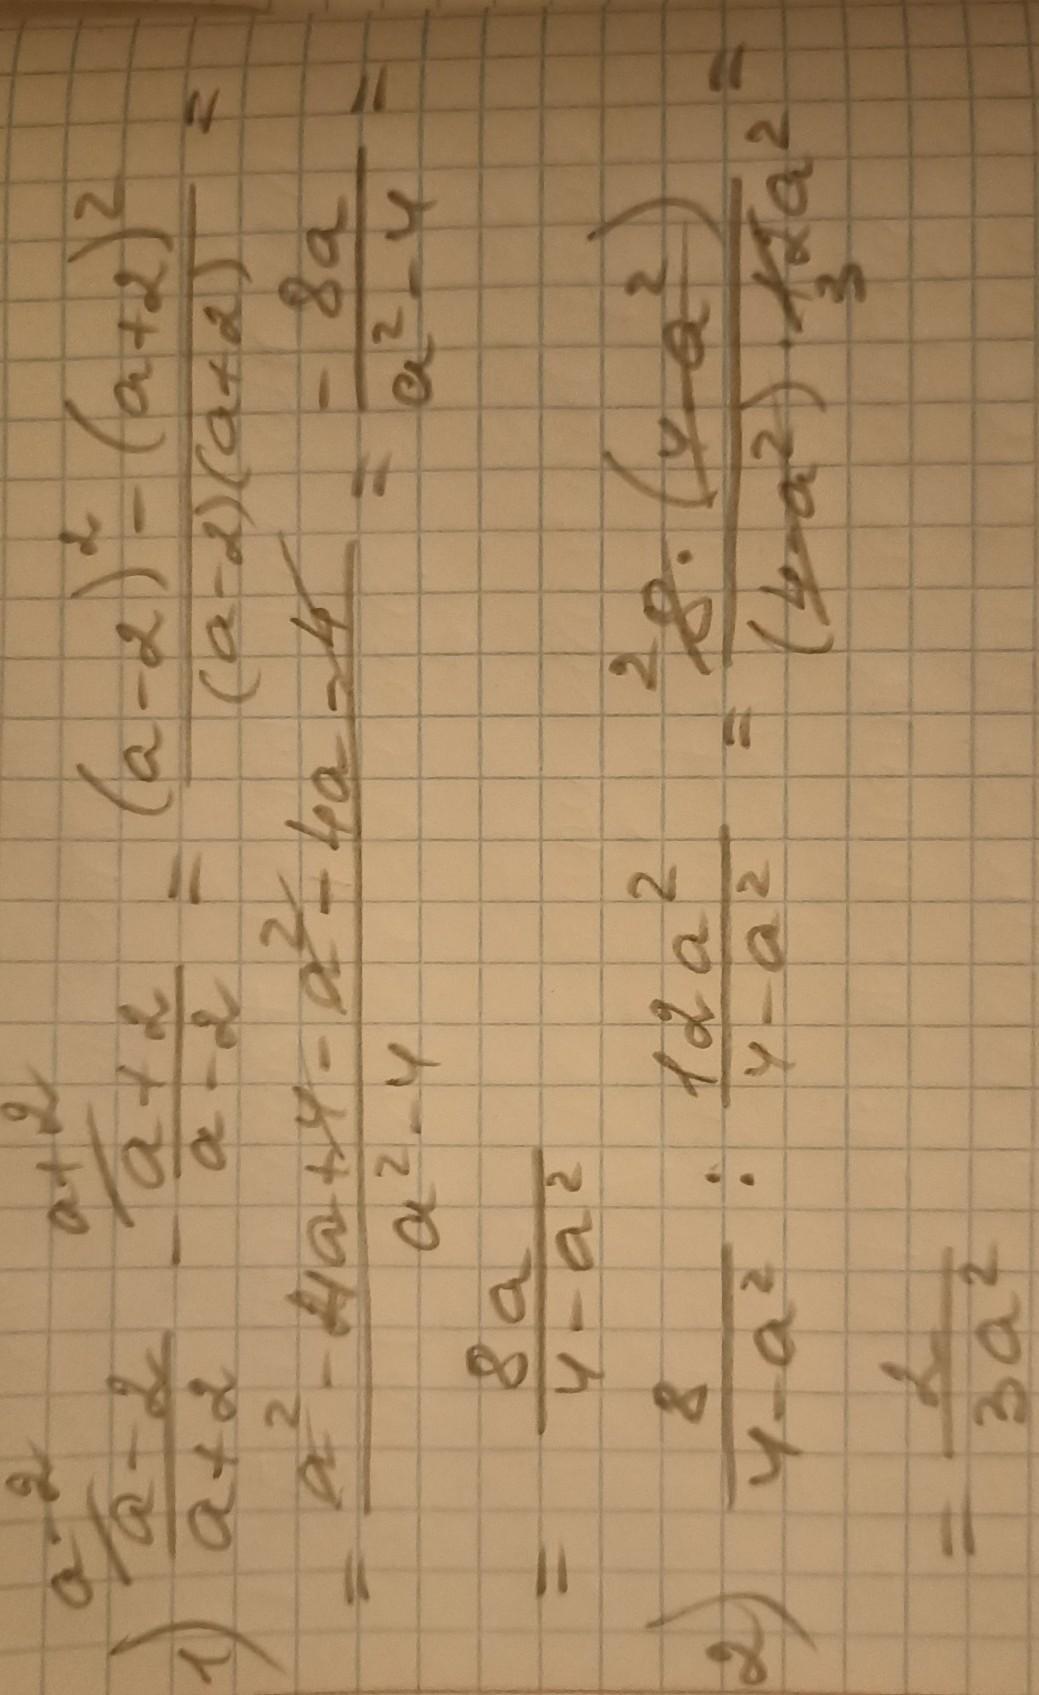 1) (a-2)/(a+2) ^(a-2) - (a+2)/(a-2) ^(a+2) = ((a-2)² - (a+2)²)/((a-2)(a+2)) =
= (a² - 4a + 4 - a² - 4a - 4)/(a² - 4) = (-8a)/(a² - 4) =
= 8a/(4-a²)
2) 8/(4-a²) : 12a²/(4-a²) = (8² · (4-a²))/((4-a²) · 12₃a²) =
= 2/(3a²)